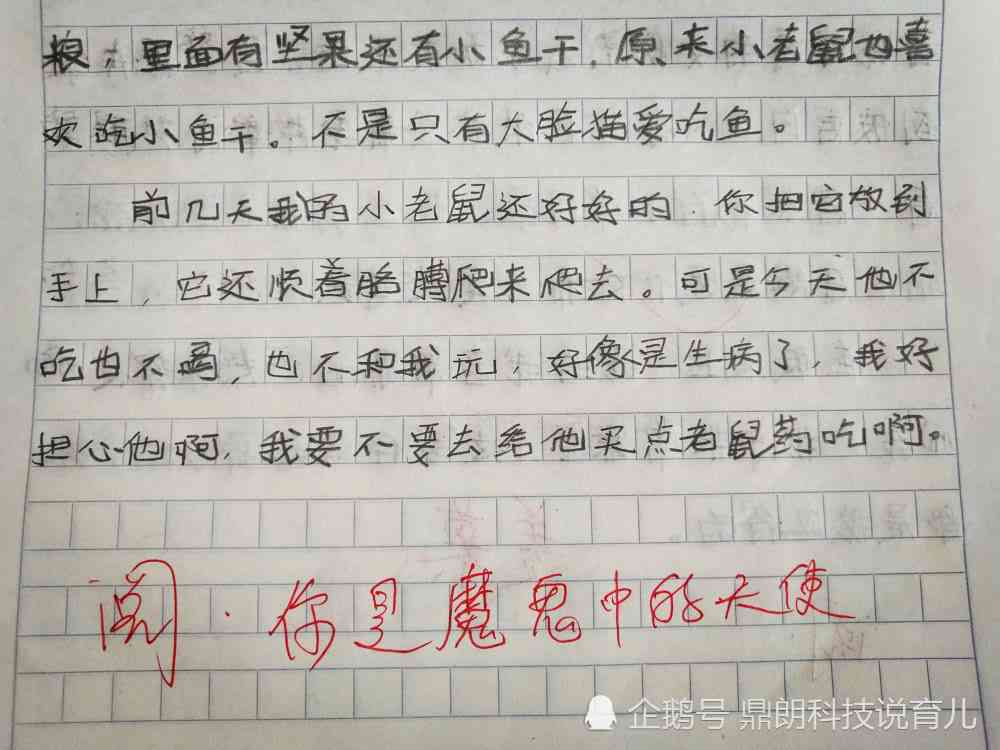 粮，里面有坚果还有小鱼干，原来小老鼠也喜
欢吃小鱼干。不是只有大脸猫爱吃鱼。
前几天我的小老鼠还好好的，你把它放到
手上，它还顺着胳膊爬来爬去。可是今天他不
吃也不喝，也不和我玩，好像是生病了，我好
担心他啊，我要不要去给他买点老鼠药吃啊。
阅．你是魔鬼中的天使
企鹅号 鼎朗科技说育儿